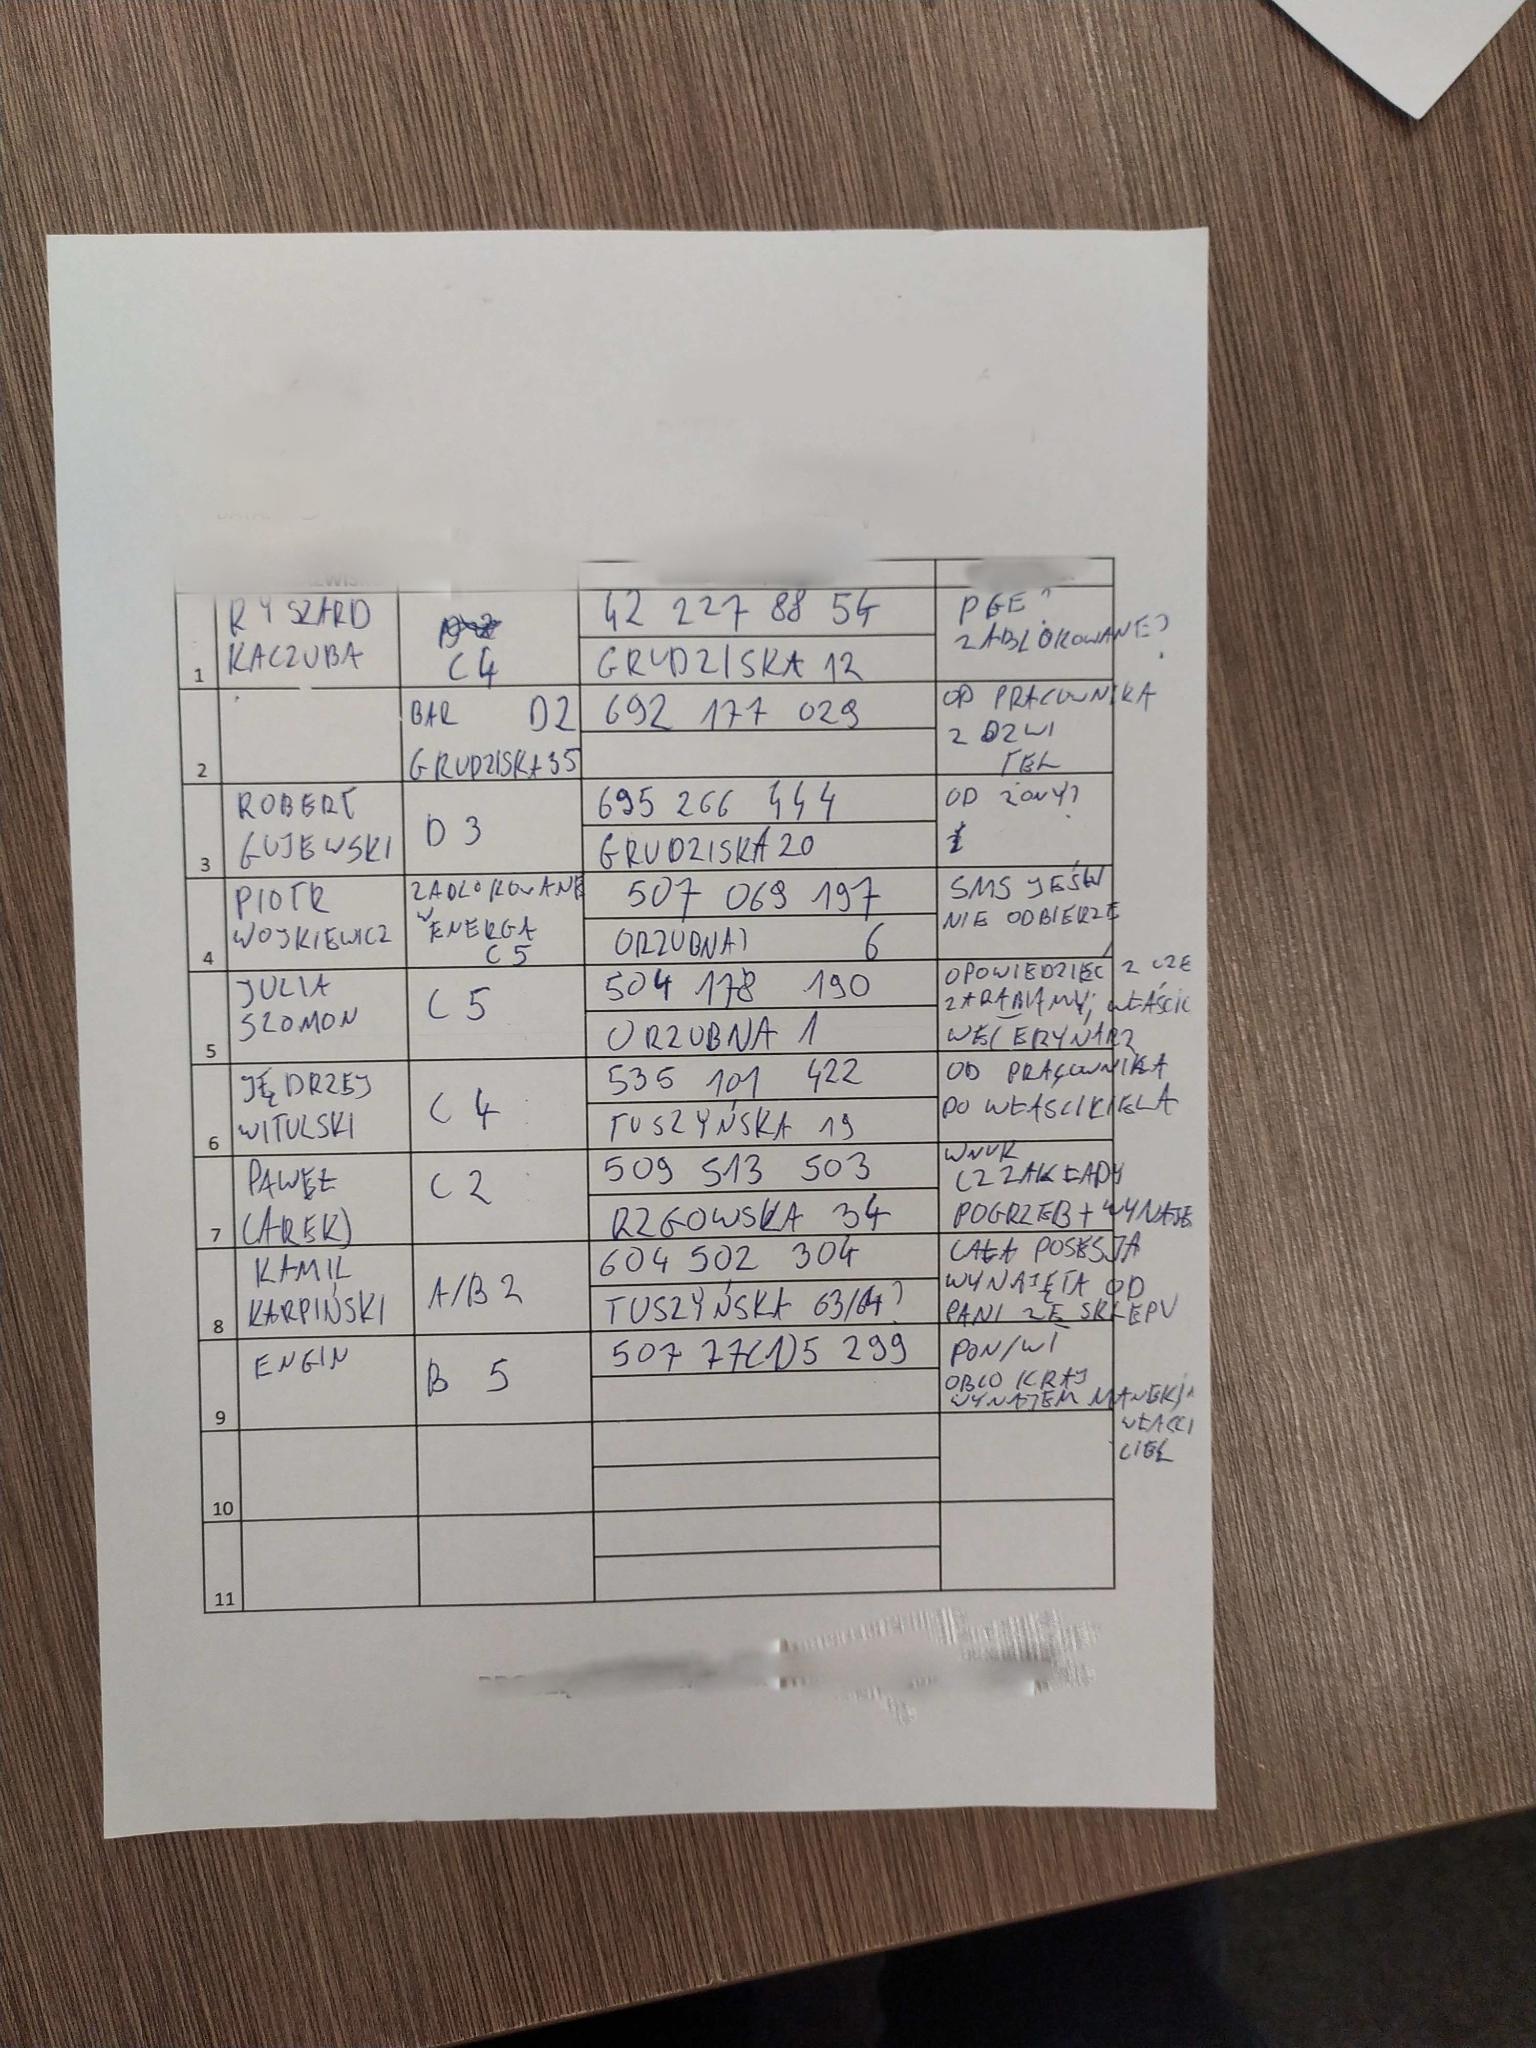 1
RYSZARD
KACZUBA
C4
42 227 88 54
GRUDZISKA 12
PGE?
ZABLOKOWANE?
2
BAR D2
GRUDZISKA 35
692 177 029
OD PRACOWNIKA
Z DZWI
TEL
3
ROBERT
GUJEWSKI
D 3
695 266 444
GRUDZISKA 20
OD ŻONY?
4
PIOTR
WOJKIEWICZ
ZABLOKOWANE
W ENERGA
C5
507 069 197
ORZUBNA? 6
SMS JEŚLI
NIE ODBIERZE
5
JULIA
SZOMON
C 5
504 178 190
ORZUBNA 1
OPOWIEDZIEĆ Z CZE
ZARABIAMY; WŁAŚCIC
WETERYNARZ
6
JĘDRZEJ
WITULSKI
C 4
535 101 422
TUSZYŃSKA 19
OD PRACOWNIKA
DO WŁAŚCIKIELA
7
PAWEŁ
(AREK)
C 2
509 513 503
RZGOWSKA 34
WNUK
CZ ZAKŁADY
POGRZEB + WYNAJE
8
KAMIL
KARPIŃSKI
A/B 2
604 502 304
TUSZYŃSKA 63/64?
CAŁA POSESJA
WYNAJĘTA OD
PANI ZE SKLEPU
9
ENGIN
B 5
507 77(1)5 299
PON/WT
OBCO KRAJ
WYNAJEM MANEKIN
WŁAŚCI
CIEL
10
11